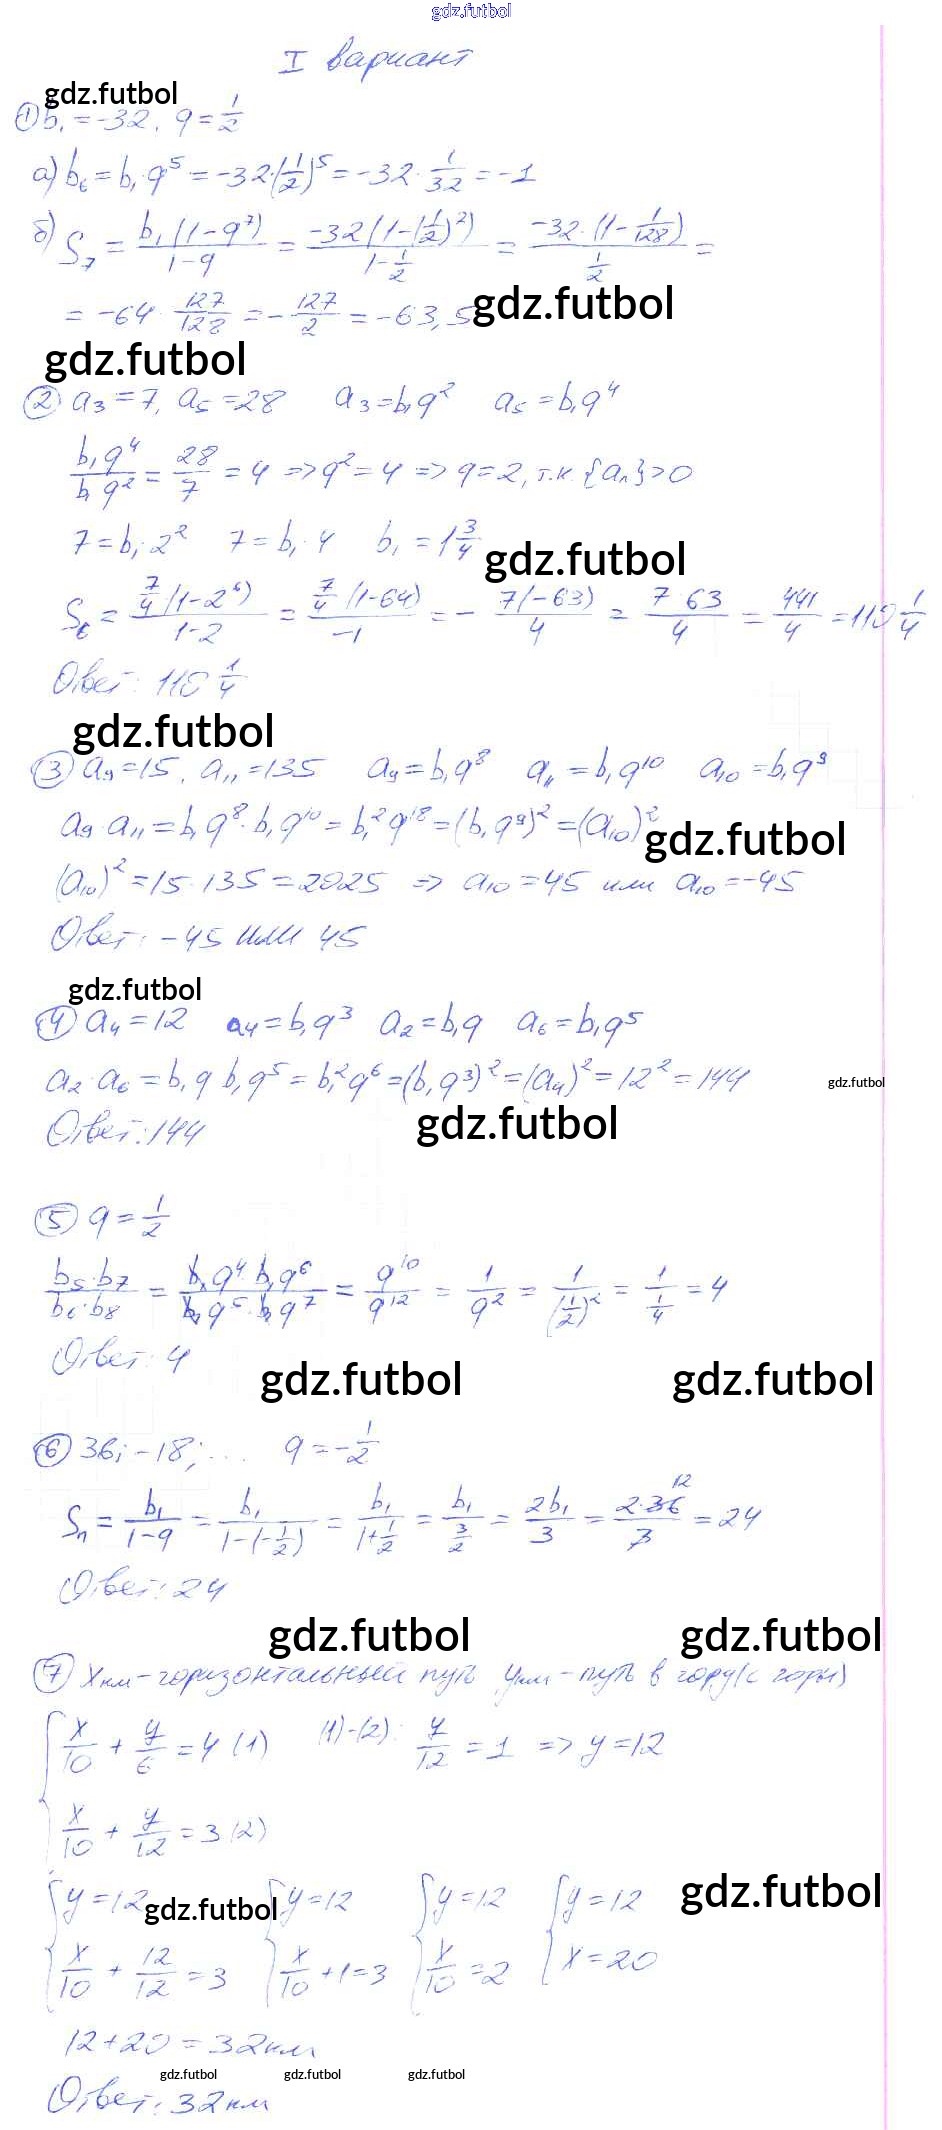 gdz.futbol
I вариант
gdz.futbol
① b₁ = -32, q = 1/2
а) b₆ = b₁·q⁵ = -32·(1/2)⁵ = -32·1/32 = -1
б) S₇ = b₁(1-q⁷)/(1-q) = -32(1-(1/2)⁷)/(1-1/2) = -32·(1-1/128)/(1/2) =
= -64·127/128 = -127/2 = -63,5
gdz.futbol
gdz.futbol
② a₃ = 7, a₅ = 28 a₃ = b₁q² a₅ = b₁q⁴
b₁q⁴/b₁q² = 28/7 = 4 => q² = 4 => q = 2, т.к. {aₙ} > 0
7 = b₁·2² 7 = b₁·4 b₁ = 1 3/4
gdz.futbol
S₆ = 7/4(1-2⁶)/(1-2) = 7/4·(1-64)/-1 = - 7(-63)/4 = 7·63/4 = 441/4 = 110 1/4
Ответ: 110 1/4
gdz.futbol
③ a₉ = 15, a₁₁ = 135 a₉ = b₁q⁸ a₁₁ = b₁q¹⁰ a₁₀ = b₁q⁹
a₉·a₁₁ = b₁q⁸·b₁q¹⁰ = b₁²q¹⁸ = (b₁q⁹)² = (a₁₀)²
gdz.futbol
(a₁₀)² = 15·135 = 2025 => a₁₀ = 45 или a₁₀ = -45
Ответ: -45 или 45
gdz.futbol
④ a₄ = 12 a₄ = b₁q³ a₂ = b₁q a₆ = b₁q⁵
a₂·a₆ = b₁q b₁q⁵ = b₁²q⁶ = (b₁q³)² = (a₄)² = 12² = 144
gdz.futbol
Ответ: 144
gdz.futbol
⑤ q = 1/2
b₅·b₇/b₆·b₈ = b₁q⁴·b₁q⁶/b₁q⁵·b₁q⁷ = q¹⁰/q¹² = 1/q² = 1/(1/2)² = 1/(1/4) = 4
Ответ: 4
gdz.futbol gdz.futbol
⑥ 36; -18; ... q = -1/2
Sₙ = b₁/(1-q) = b₁/(1-(-1/2)) = b₁/(1+1/2) = b₁/(3/2) = 2b₁/3 = 2·36/3 = 24
12
Ответ: 24
gdz.futbol gdz.futbol
⑦ x км - горизонтальный путь, y км - путь в гору (с горы)
{ x/10 + y/6 = 4 (1) (1)-(2): y/12 = 1 => y = 12
x/10 + y/12 = 3 (2)
gdz.futbol
{ y = 12 { y = 12 { y = 12 { y = 12
gdz.futbol
x/10 + 12/12 = 3 x/10 + 1 = 3 x/10 = 2 x = 20
12 + 20 = 32 км
gdz.futbol gdz.futbol gdz.futbol
Ответ: 32 км